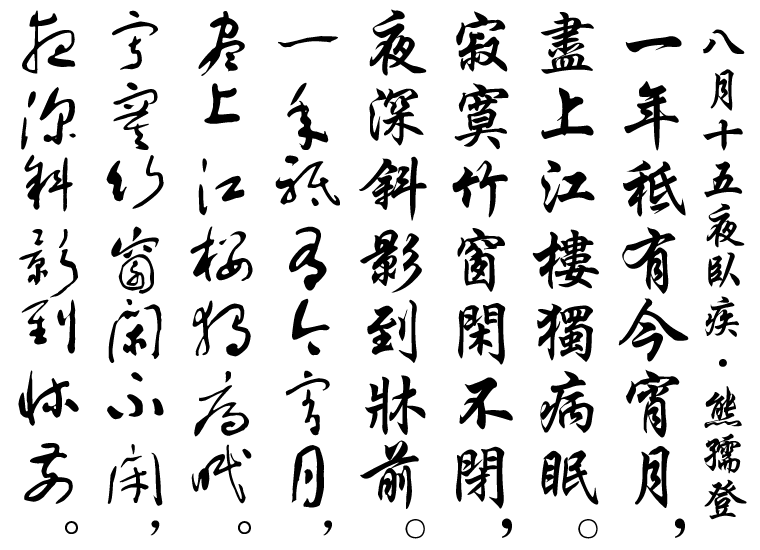 八月十五夜臥疾・熊孺登
一年秖有今宵月，
盡上江樓獨病眠。
寂寞竹窗閑不閉，
夜深斜影到牀前。
一年秖有今宵月，
盡上江樓獨病眠。
寂寞竹窗閑不閉，
夜深斜影到牀前。